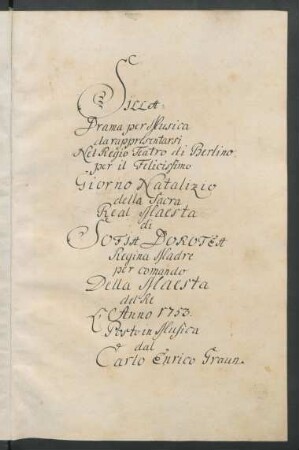 Silla
Drama per Musica
da rappresentarsi
Nel Regio Teatro di Berlino
per il Felicissimo
Giorno Natalizio
della Sacra
Real Maesta
di
Sofia Dorotea
Regina Madre
per comando
Della Maesta
del Re
L'Anno 1753.
Posto in Musica
dal
Carlo Enrico Graun.